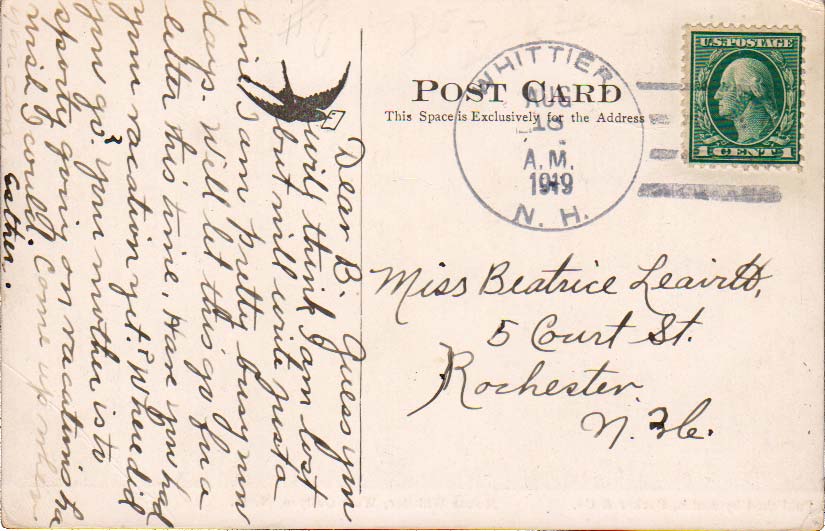 U.S. POSTAGE
1 CENT 1
WHITTIER
AUG
18
A.M.
1919
N. H.
POST CARD
This Space is Exclusively for the Address
Miss Beatrice Leavitt,
5 Court St.
Rochester
N. H.
Dear B. Guess you
will think I am lost
but will write just a
line. I am pretty busy now
days. Will let this go for a
letter this time. Have you had
your vacation yet? Where did
you go? Your mother is to
sporty going on vacations ha
wish I could. Come up when
you can
Esther.